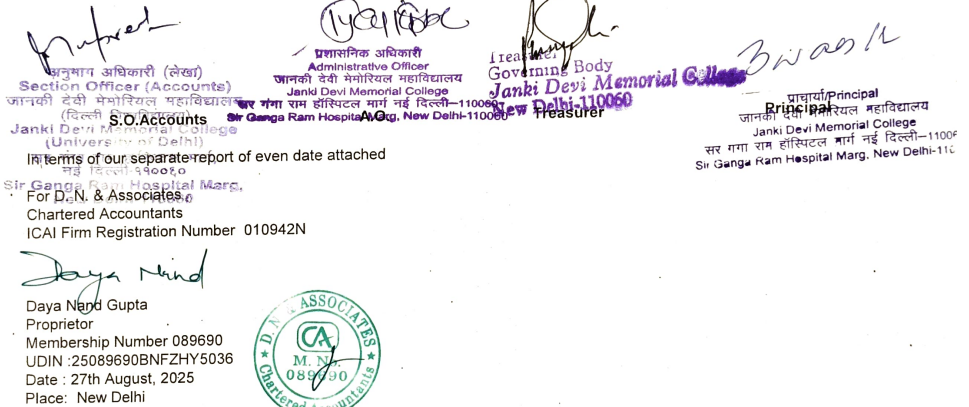 अनुभाग अधिकारी (लेखा)
Section Officer (Accounts)
जानकी देवी मेमोरियल महाविद्यालय
(दिल्ली
S.O.Accounts
Janki Devi Memorial College
(University of Delhi)
नई दिल्ली-११००६०
Sir Ganga Ram Hospital Marg,
New Delhi-110060
प्रशासनिक अधिकारी
Administrative Officer
जानकी देवी मेमोरियल महाविद्यालय
Janki Devi Memorial College
सर गंगा राम हॉस्पिटल मार्ग नई दिल्ली–110060
Sir Ganga Ram Hospital Marg, New Delhi-110060
A.O.
Treasurer
Governing Body
Janki Devi Memorial College
New Delhi-110060
Treasurer
प्राचार्या/Principal
Principal
जानकी देवी मेमोरियल महाविद्यालय
Janki Devi Memorial College
सर गंगा राम हॉस्पिटल मार्ग नई दिल्ली–1100
Sir Ganga Ram Hospital Marg, New Delhi-110
In terms of our separate report of even date attached
For D. N. & Associates
Chartered Accountants
ICAI Firm Registration Number 010942N
Daya Nand
Daya Nand Gupta
Proprietor
Membership Number 089690
UDIN :25089690BNFZHY5036
Date : 27th August, 2025
Place: New Delhi
D. N. & ASSOCIATES
CA
M. No.
089690
Chartered Accountants